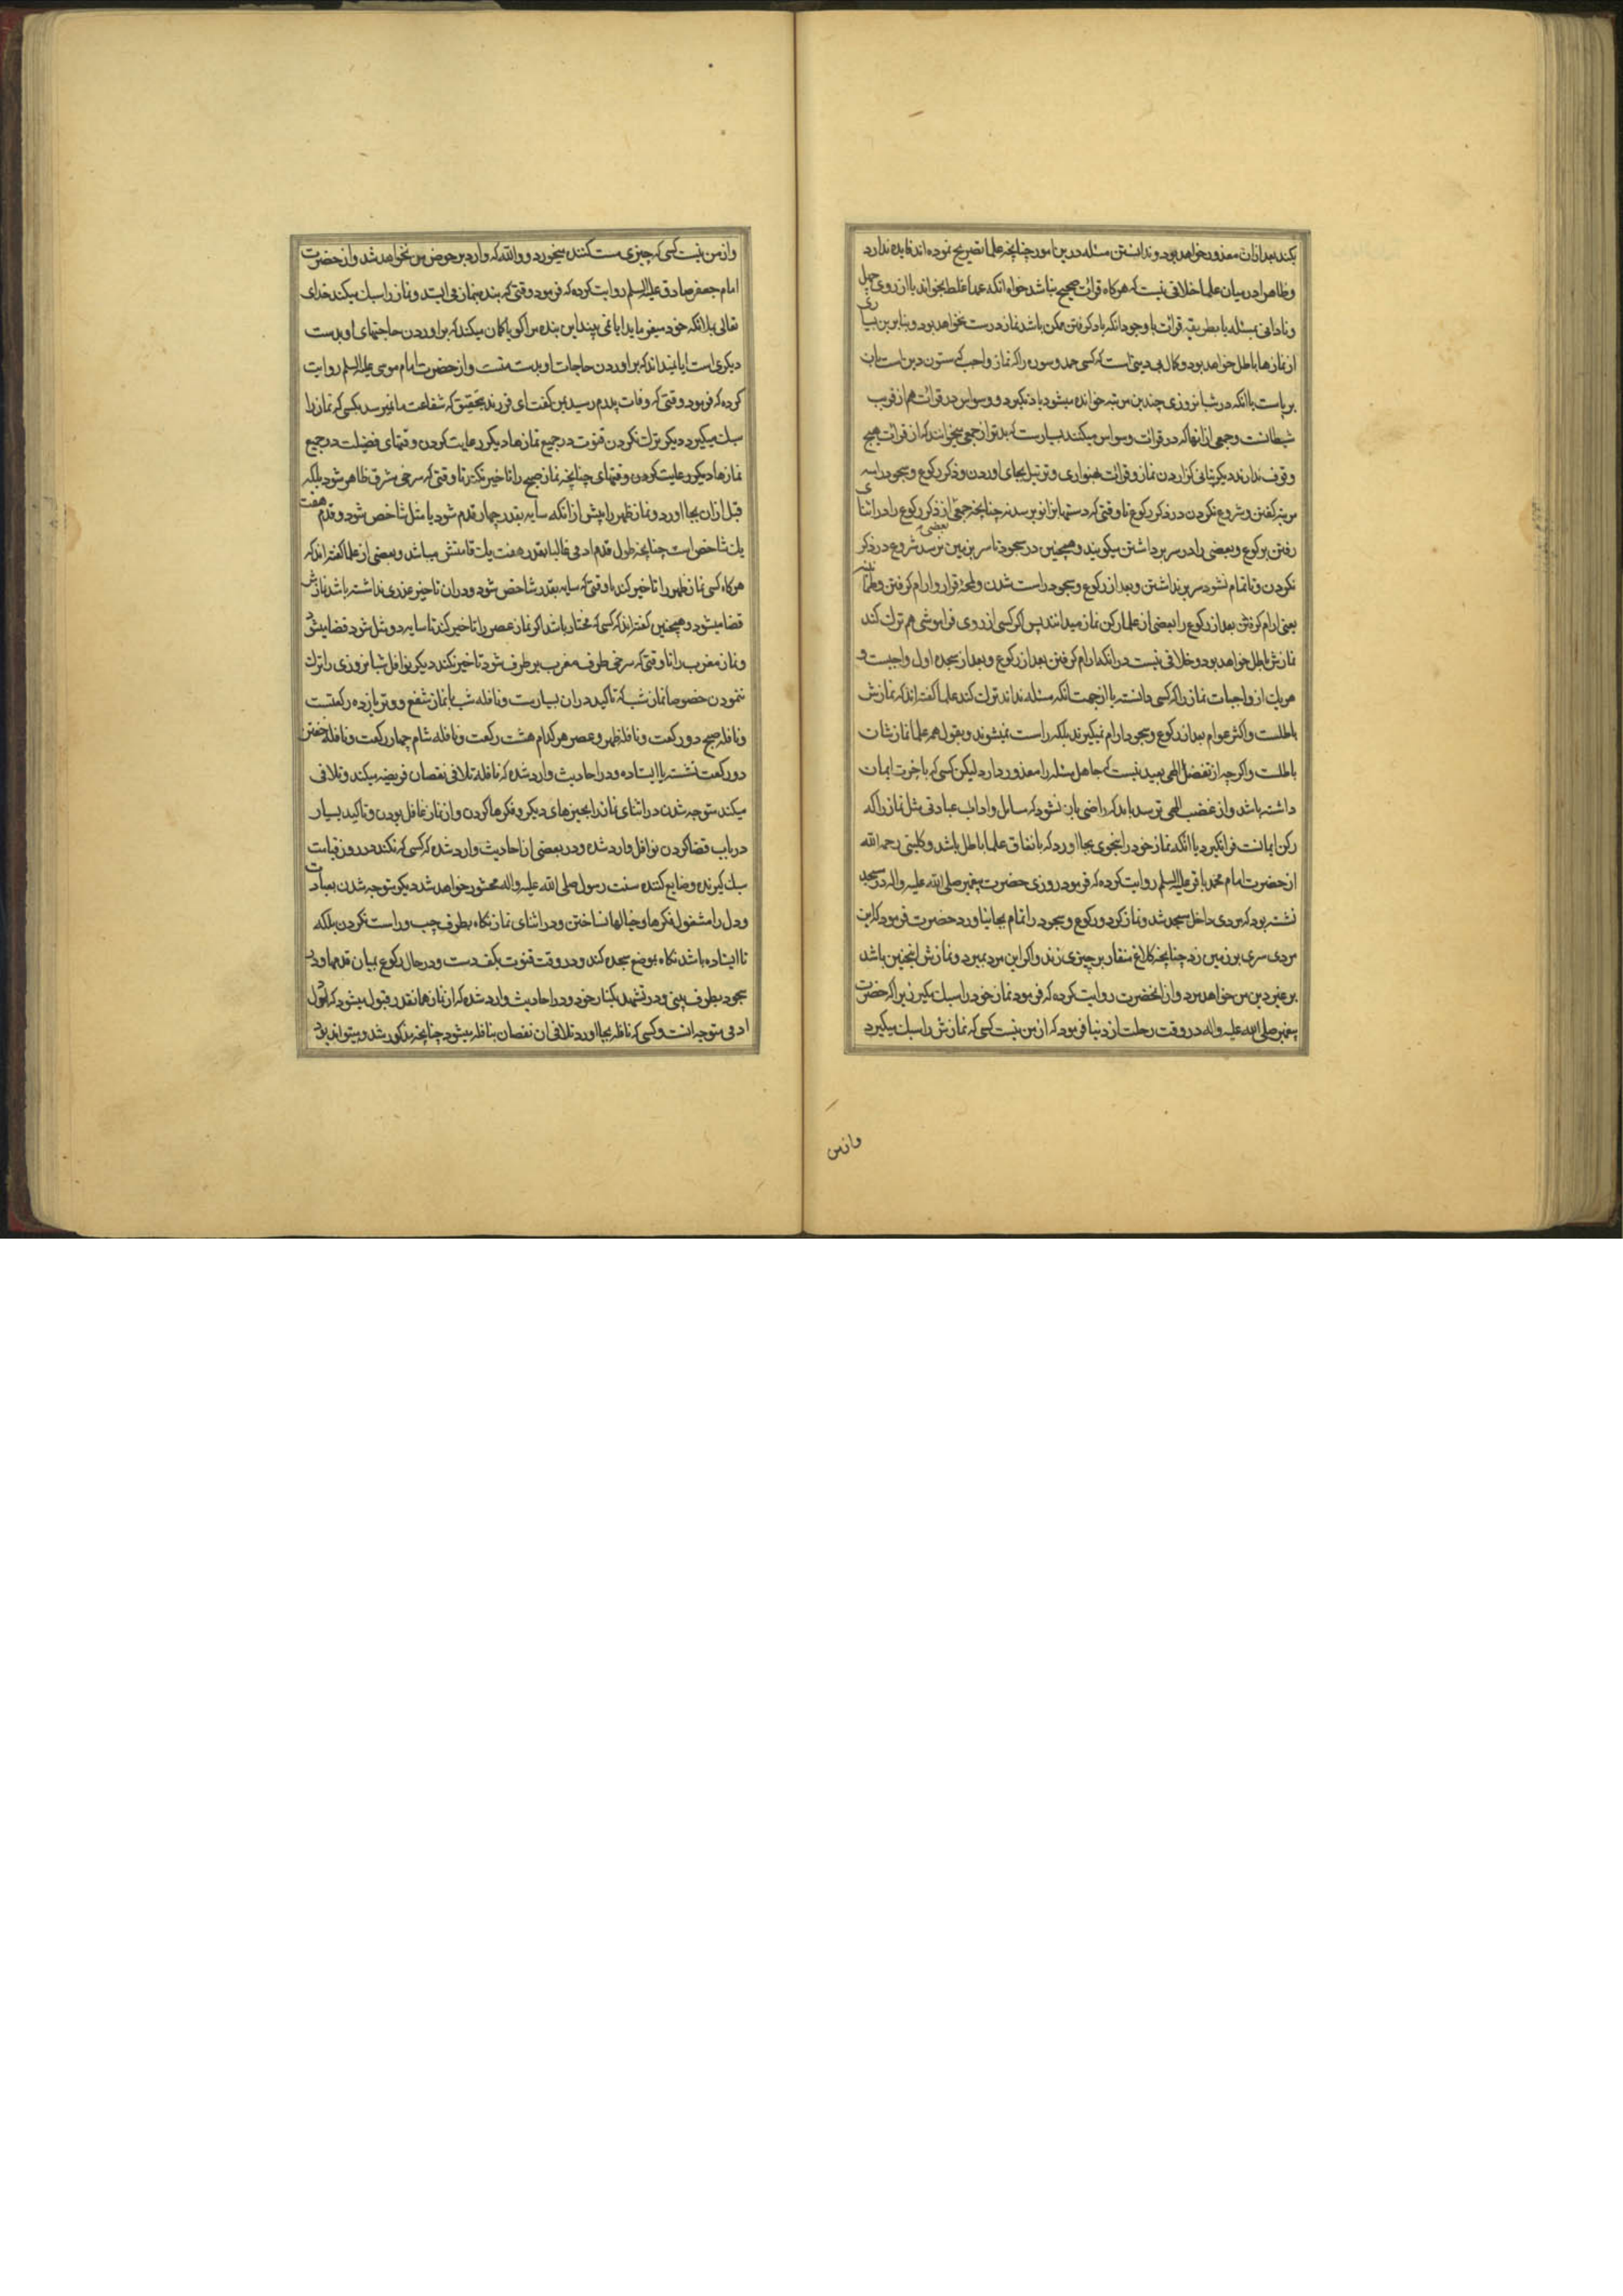 بکند بعد از ان معذور خواهد بود و ندانستن مسئله درین امور چنانچه علما تصریح نموده اند فایده ندارد
و ظاهرا در میان علما خلافی نیست که هرکاه قرائت صحیح نباشد خواه انکه عمدا غلط بخواند یا از روی جهل
و نادانی بمسئله یا بطریقه قرائت با وجود انکه یاد کرفتن ممکن باشد نماز درست نخواهد بود و بنابرین بسیاری
از نمازها باطل خواهد بود و کمال بی دینی است که کسی حمد و سوره را که نماز واجب که ستون دین است بان
برپاست با انکه در شبانروزی چندین مرتبه خوانده میشود یاد نکیرد و وسواس در قرائت هم از فریب
شیطانست و جمعی از انها که در قرائت وسواس میکنند بسیارست که بدتر از جمعی میخوانند که از قرائت هیچ
وقوف ندارند دیکر بتانی کزاردن نماز و قرائت بهمواری و ترتیل بجای اوردن و ذکر رکوع و سجود را سه
مرتبه کفتن و شروع نکردن در ذکر رکوع تا وقتی که دستها بزانو برسد نه چنانچه جمعی از ذکر رکوع را در اثنای
رفتن برکوع و بعضی را در سر برداشتن میکویند و همچنین در سجود تا سر بزمین نرسد شروع در ذکر بعضی
نکردن و تا تمام نشود سر برنداشتن و بعد از رکوع و سجود راست شدن و لمحهٔ قرار و ارام کرفتن و طمانینه
یعنی ارام کرفتن بعد از رکوع را بعضی از علما رکن نماز میدانند پس اکر کسی از روی فراموشی هم ترک کند
نمازش باطل خواهد بود و خلافی نیست در انکه ارام کرفتن بعد از رکوع و بعد از سجده اول واجبست و
هریک از واجبات نماز را که کسی دانسته یا از جهت انکه مسئله نداند ترک کند علما کفته اند که نمازش
باطلست و اکثر عوام بعد از رکوع و سجود ارام نمیکیرند بلکه راست نمیشوند و بقول همه علما نمازشان
باطلست و اکرچه از تفضل الهی بعید نیست که جاهل مسئله را معذور دارد لیکن کسی که باخرت ایمان
داشته باشد و از غضب الهی ترسد باید که راضی بان نشود که مسایل و اداب عبادتی مثل نماز را که
رکن ایمانست فرانکیرد یا انکه نماز خود را بنحوی بجا اورد که باتفاق علما باطل باشد و کلینی رحمه الله
از حضرت امام محمد باقر علیه السلم روایت کرده که فرمود روزی حضرت پیغمبر صلی الله علیه و اله در مسجد
نشسته بود که مردی داخل مسجد شد و نماز کرد و رکوع و سجود را تمام بجا نیاورد حضرت فرمود که این
مردی سری بر زمین زد چنانچه کلاغ منقار بر چیزی زند و اکر این مرد بمیرد و نمازش اینچنین باشد
بر غیر دین من خواهد مرد و از انحضرت روایت کرده که فرمود نماز خود را سبک مکیر زیرا که حضرت
پیغمبر صلی الله علیه و اله در وقت رحلت از دنیا فرمود که از من نیست کسی که نمازش را سبک میکیرد
و از من
و از من نیست کسی که چیزی مست کننده میخورد و والله که وارد بر حوض من نخواهد شد و از حضرت
امام جعفر صادق علیه السلم روایت کرده که فرمود وقتی که بنده بنماز می ایستد و نماز را سبک میکند خدای
تعالی بملائکه خود میفرماید ایا نمی بیند این بنده مرا کویا کمان میکند که براوردن حاجتهای او بدست
دیکری است ایا نمیداند که براوردن حاجات او بدست منست و از حضرت امام موسی علیه السلم روایت
کرده که فرمود وقتی که وفات پدرم رسید بمن کفت ای فرزند بتحقیق که شفاعت ما نمیرسد بکسی که نماز را
سبک میکیرد دیکر ترک نکردن قنوت در جمیع نمازها دیکر رعایت کردن وقتهای فضیلت در جمیع
نمازها دیکر رعایت کردن وقتهای چنانچه نماز صبح را تاخیر نکند تا وقتی که سرخی مشرق ظاهر شود بلکه
قبل از ان بجا اورد و نماز ظهر را پیش از انکه سایه بقدر چهار قدم شود یا مثل شاخص شود و قدم هفت
یک شاخص است چنانچه طول قدم ادمی غالبا بقدر هفت یک قامتش میباشد و بعضی از علما کفته اند که
هرکاه کسی نماز ظهر را تاخیر کند تا وقتی که سایه بقدر شاخص شود و دران تاخیر عذری نداشته باشد نمازش
قضا میشود و همچنین کفته اند که کسی که مختار باشد اکر نماز عصر را تاخیر کند تا سایه دو مثل شود قضا میشود
و نماز مغرب را تا وقتی که سرخی طرف مغرب برطرف شود تاخیر نکند دیکر نوافل شبانروزی را ترک
ننمودن خصوصا نماز شب که تاکید دران بسیارست و نافله شب با نماز شفع و وتر یازده رکعتست
و نافله صبح دو رکعت و نافله ظهر و عصر هر کدام هشت رکعت و نافله شام چهار رکعت و نافله خفتن
دو رکعت نشسته یا ایستاده و در احادیث وارد شده که نافله تلافی نقصان فریضه میکند و تلافی
میکند متوجه شدن در اثنای نماز را بچیزهای دیکر و فکرها کردن و از نماز غافل بودن و تاکید بسیار
در باب قضا کردن نوافل وارد شده و در بعضی از احادیث وارد شده که کسی که نکند در روز قیامت
سبک کیرنده و ضایع کننده سنت رسول صلی الله علیه و اله محشور خواهد شد دیکر متوجه شدن بعبادت
و دل را مشغول فکرها و خیالها نساختن و در اثنای نماز نکاه بطرف چپ و راست نکردن بلکه
تا ایستاده باشد نکاه بموضع سجده کند و در وقت قنوت بکف دست و در حال رکوع بمیان قدمها و در
سجود بطرف بینی و در تشهد بکنار خود و در احادیث وارد شده که از نماز همانقدر قبول میشود که دل
ادمی متوجه انست و کسی که نافله بجا اورد تلافی ان نقصان بنافله میشود چنانچه مذکور شد و میتواند بود